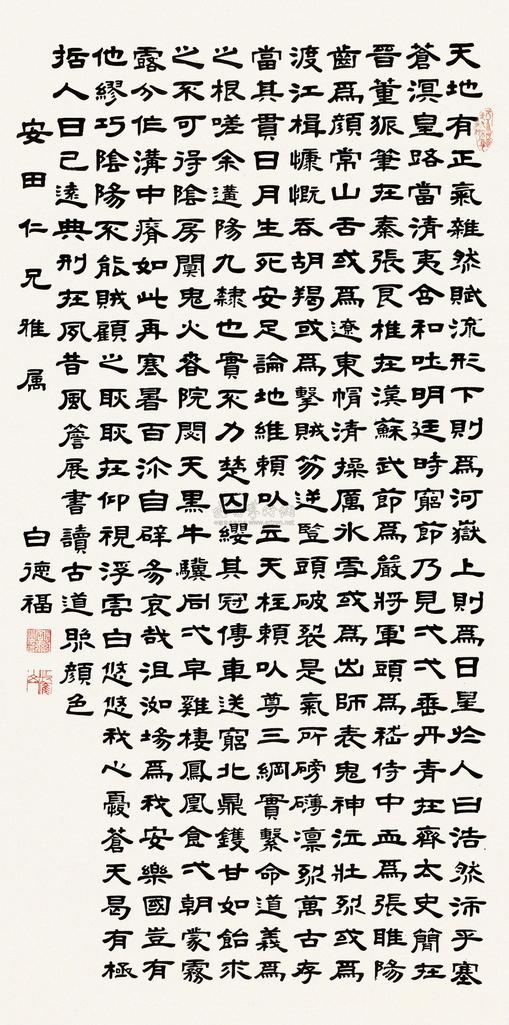 天地有正氣雜然賦流形下則爲河嶽上則爲日星於人曰浩然沛乎塞
蒼溟皇路當清夷含和吐明廷時窮節乃見弌弌垂丹青在齊太史簡在
晉董狐筆在秦張良椎在漢蘇武節爲嚴將軍頭爲嵇侍中血爲張睢陽
齒爲顏常山舌或爲遼東帽清操厲冰雪或爲出師表鬼神泣壯烈或爲
渡江楫慷慨吞胡羯或爲擊賊笏逆豎頭破裂是氣所磅礴凛烈萬古存
當其貫日月生死安足論地維賴以立天柱賴以尊三綱實繫命道義爲
之根嗟余遘陽九隸也實不力楚囚纓其冠傳車送窮北鼎鑊甘如飴求
之不可得陰房闃鬼火春院閟天黑牛驥同弌皁雞棲鳳凰食弌朝蒙霧
露分作溝中瘠如此再寒暑百沴自辟易哀哉沮洳場爲我安樂國豈有
他繆巧陰陽不能賊顧之耿耿在仰視浮雲白悠悠我心憂蒼天曷有極
哲人日已遠典刑在夙昔風簷展書讀古道照顏色
安田仁兄雅属
白德福